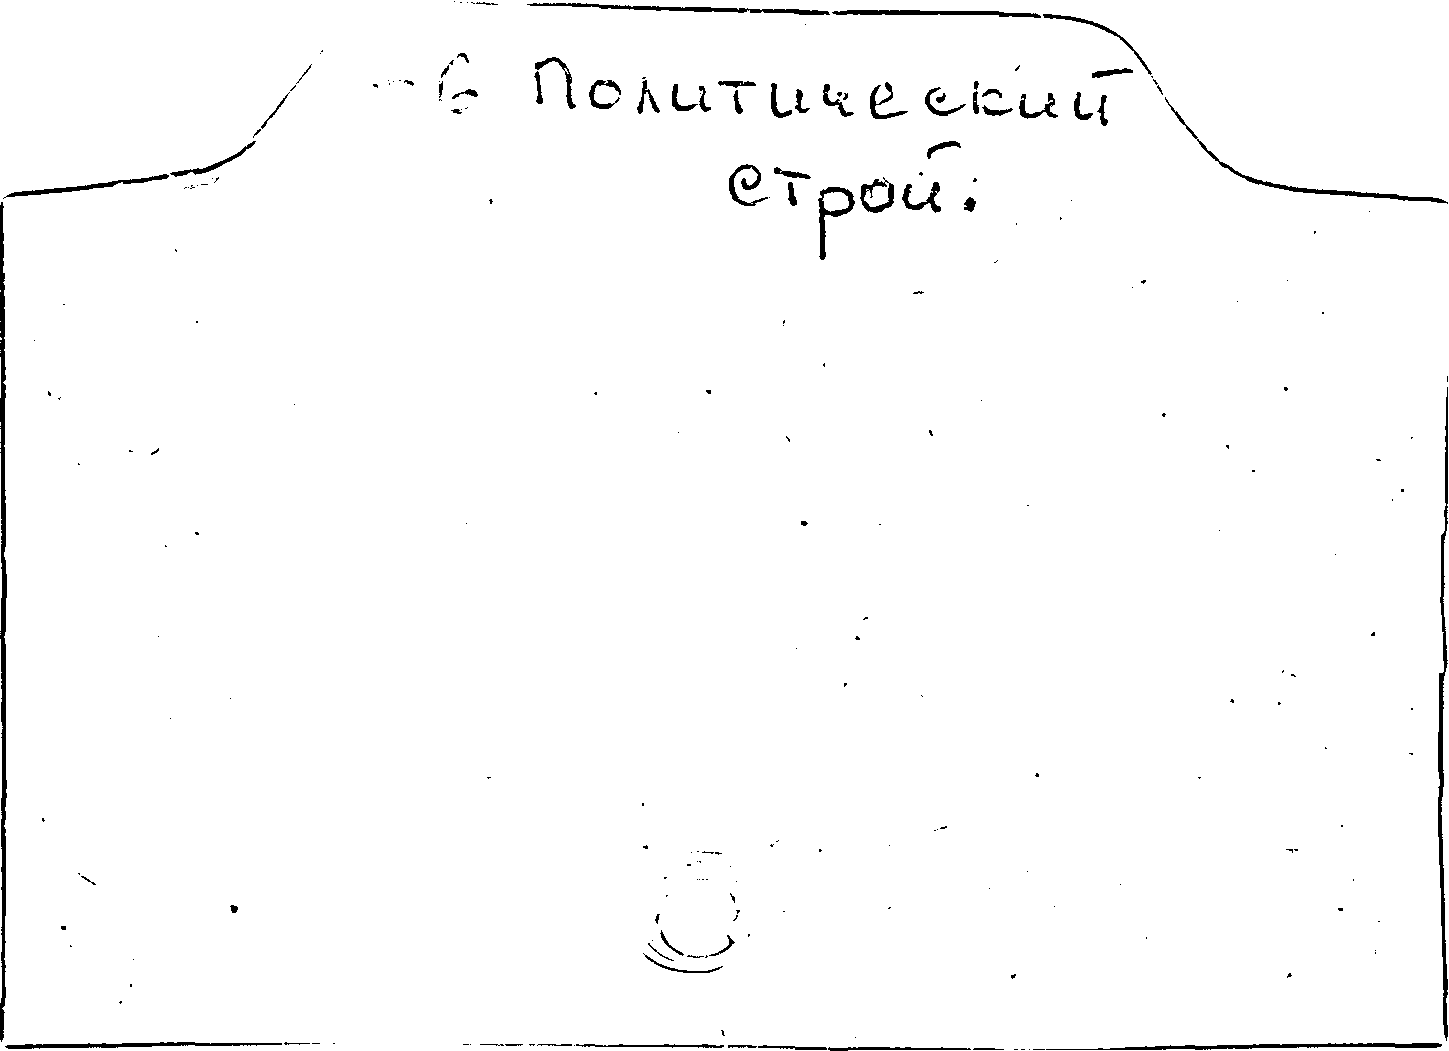 -6 Политический
строй.